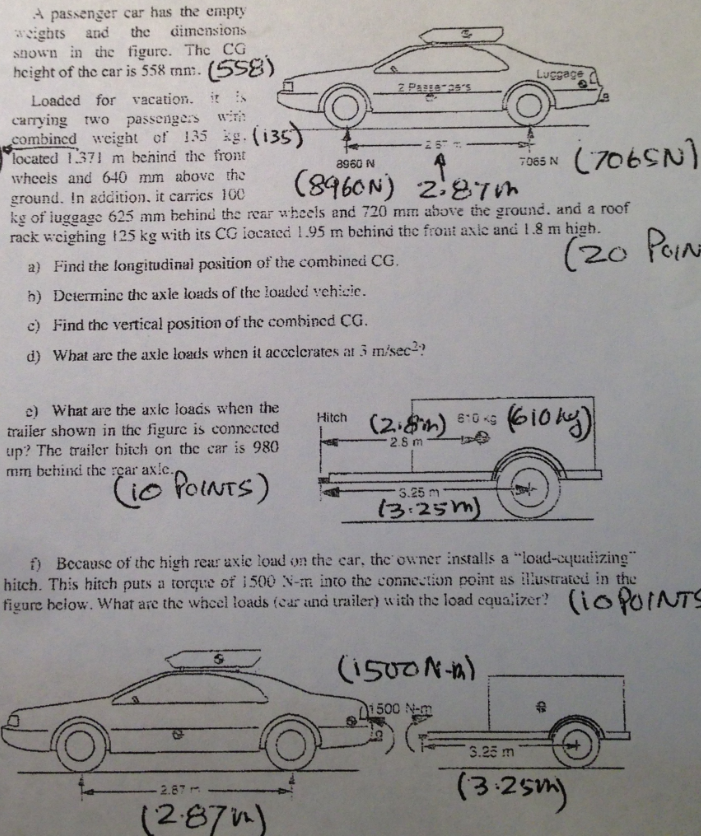 A passenger car has the empty
weights and the dimensions
shown in the figure. The CG
height of the car is 558 mm. (558)
Loaded for vacation, it is
carrying two passengers with
combined weight of 135 kg. (135)
located 1.371 m behind the front
wheels and 640 mm above the
ground. In addition, it carries 100
kg of luggage 625 mm behind the rear wheels and 720 mm above the ground, and a roof
rack weighing 125 kg with its CG located 1.95 m behind the front axle and 1.8 m high.
Luggage
2 Passengers
8960 N
7065 N
(7065N)
(8960N) 2.87m
(20 POIN
a) Find the longitudinal position of the combined CG.
b) Determine the axle loads of the loaded vehicle.
c) Find the vertical position of the combined CG.
d) What are the axle loads when it accelerates at 3 m/sec2?
e) What are the axle loads when the
trailer shown in the figure is connected
up? The trailer hitch on the car is 980
mm behind the rear axle.
(10 POINTS)
Hitch
(2.8m)
610 kg
(610kg)
2.8 m
3.25 m
(3.25m)
f) Because of the high rear axle load on the car, the owner installs a "load-equalizing"
hitch. This hitch puts a torque of 1500 N-m into the connection point as illustrated in the
figure below. What are the wheel loads (car and trailer) with the load equalizer? (10 POINTS
(1500 N-m)
1500 N-m
3.25 m
2.87 m
(3.25m)
(2.87m)